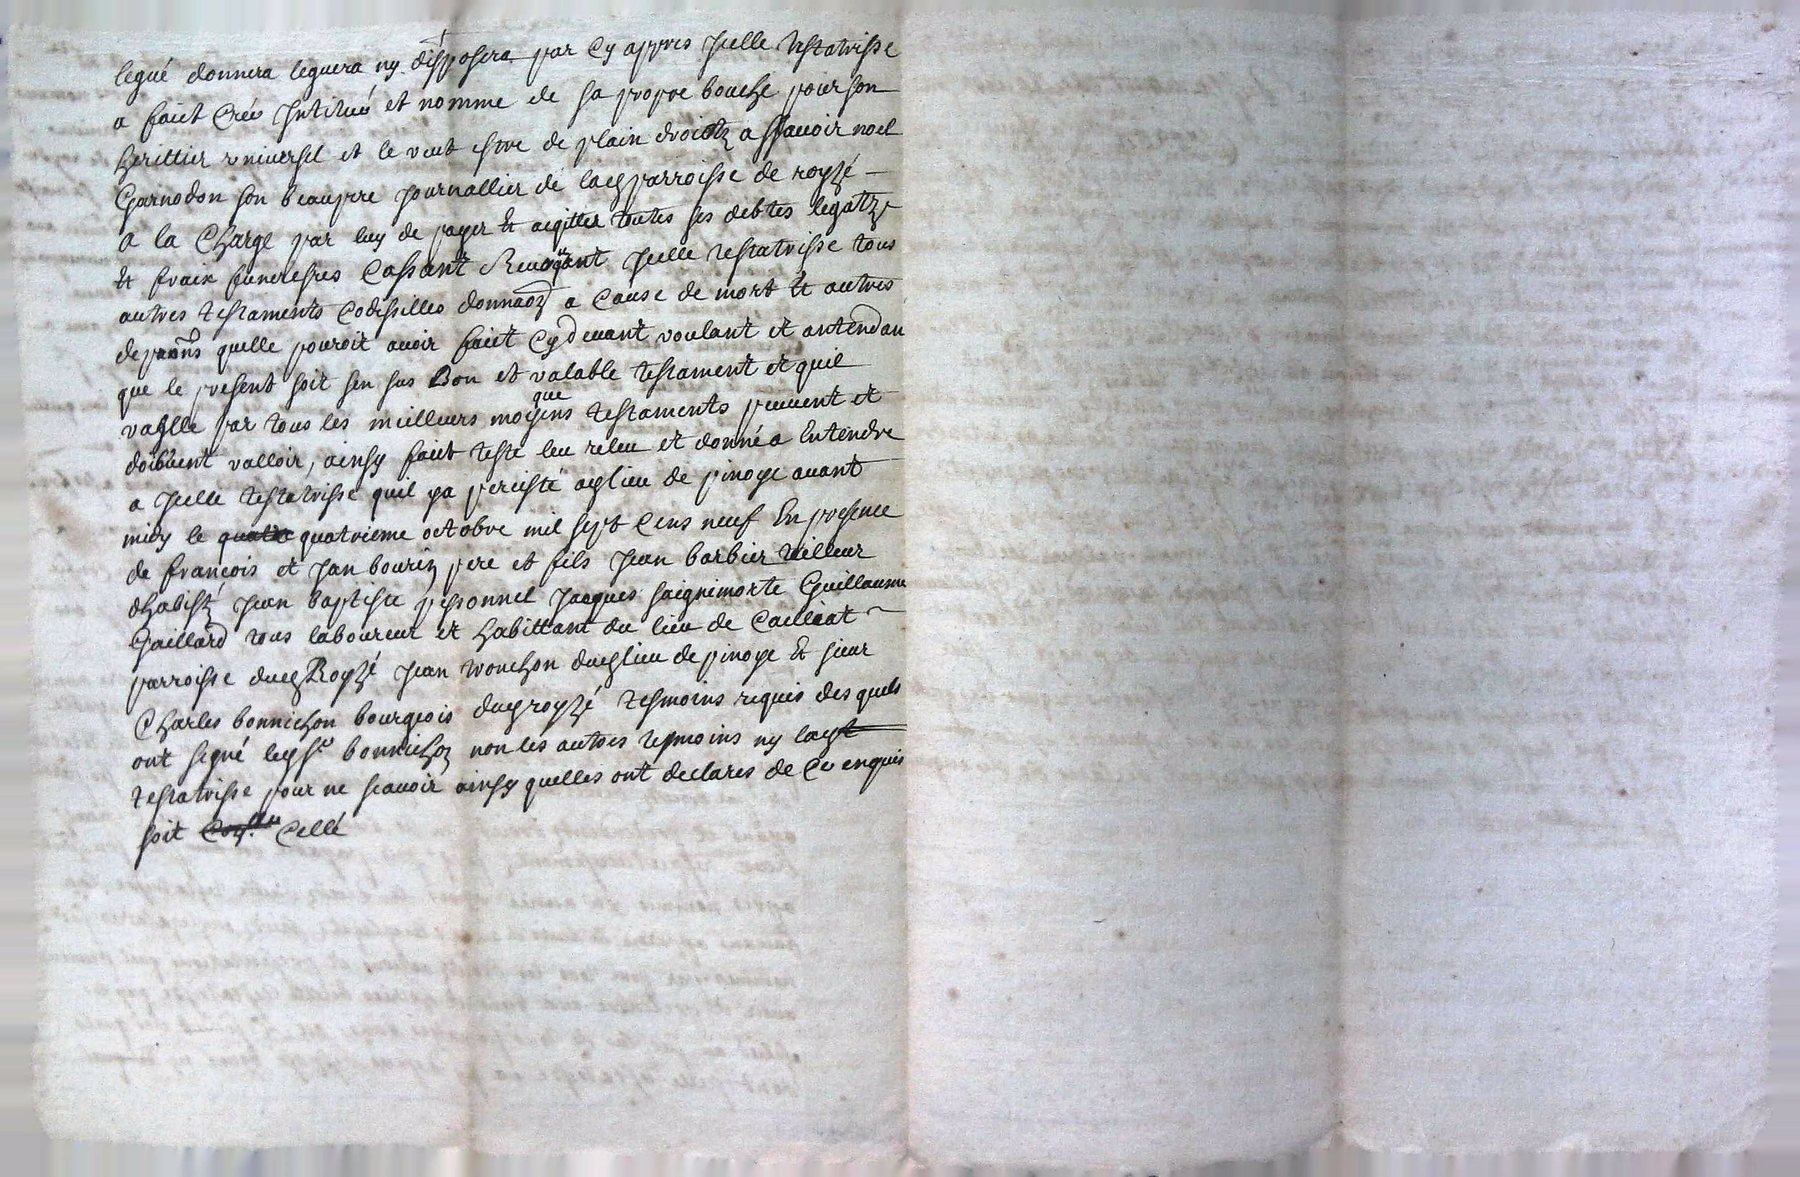 legué donnera leguera ny disposera par cy appres Jcelle testatrisse
a faict Créé Jntitué et nomme de sa propre bouche pour son
herittier universel et le veut estre de plain droictz a scavoir noel
Garnodon son beaupere Journallier de lad parroisse de royzé
a la Charge par luy de payer et aqitter toutes ses debtes legatz
et fraix funeresres Cassant Revoqant Jcelle testatrisse tous
autres testaments Codissilles donnaon a Cause de mort et autres
quelle pouroit avoir faict Cydevant voulant et antendan
que le present soit sen sus Bon et valable testament et quil
vaslle par tous les meilleurs moyens que testaments peuvent et
doibvent valloir, ainsy faict teste leu releu et donné a Entendre
a Jcelle testatrisse quil ya percisté aud lieu de pinoye avant
midy le quatre quatrieme octobre mil sept Cens neuf En presence
de françois et Jan bourin pere et fils Jean barbier tailleur
dhabist Jean baptiste pessonnel Jacques saignimorte Guillaume
Gaillard tous laboureur et habittant du lieu de Cailleat
parroisse dud Royzé Jean trouchon dud lieu de pinoye et sieur
Charles bonnichon bourgeois dud royzé tesmoins requis des quels
ont signé led sr bonnichon non les autres tesmoins ny lad
testatrisse pour ne scavoir ainsy quelles ont declares de Ce enquis
soit Cellé